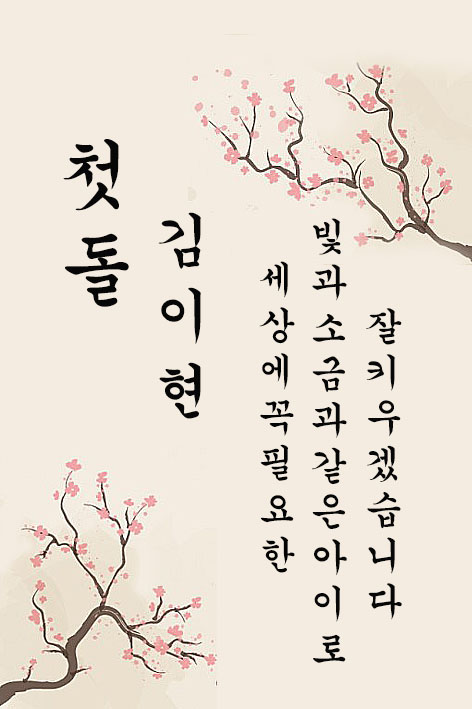 첫돌
김이현
세상에꼭필요한
빛과소금과같은아이로
잘키우겠습니다